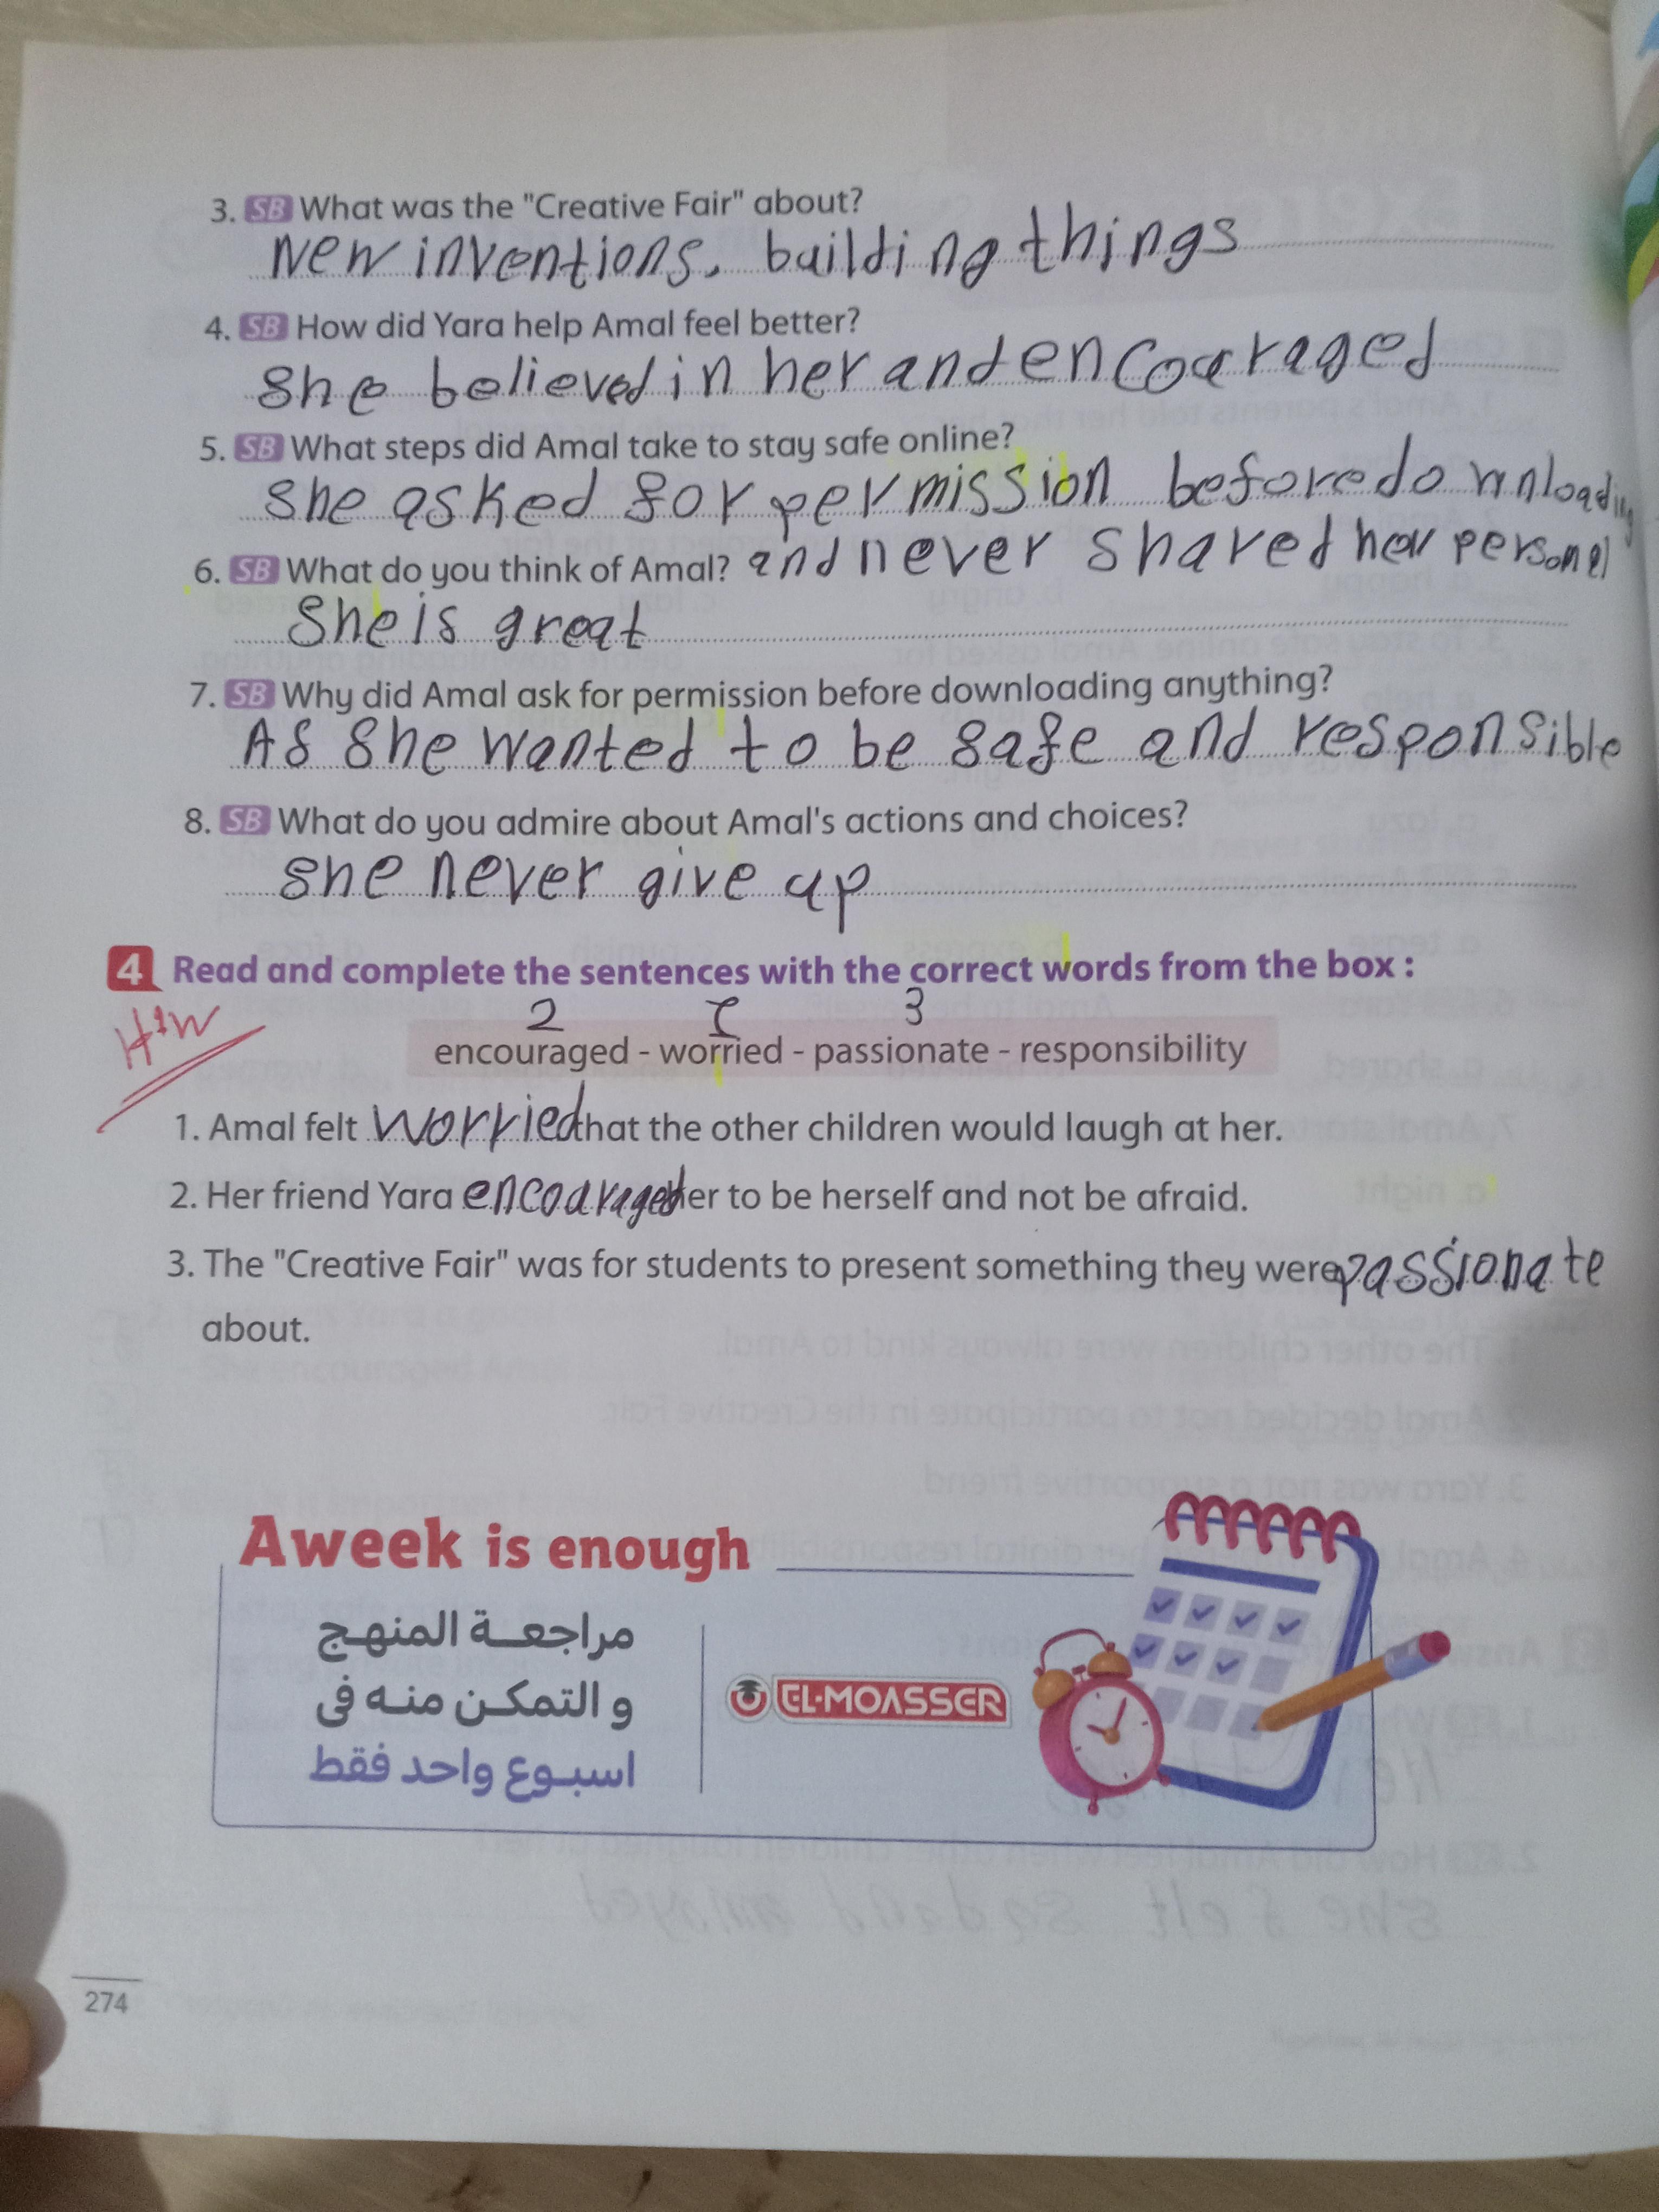 3. SB What was the "Creative Fair" about?
New inventions, building things
4. SB How did Yara help Amal feel better?
She believed in her and encouraged
5. SB What steps did Amal take to stay safe online?
She asked for permission before downloading
6. SB What do you think of Amal? and never shared her personel
She is great
7. SB Why did Amal ask for permission before downloading anything?
As She wanted to be safe and responsible
8. SB What do you admire about Amal's actions and choices?
She never give up
4 Read and complete the sentences with the correct words from the box :
H.W
2 1 3
encouraged - worried - passionate - responsibility
1. Amal felt worried that the other children would laugh at her.
2. Her friend Yara encouraged her to be herself and not be afraid.
3. The "Creative Fair" was for students to present something they were passionate
about.
Aweek is enough
مراجعة المنهج
و التمكن منه فى
اسبوع واحد فقط
EL-MOASSER
274